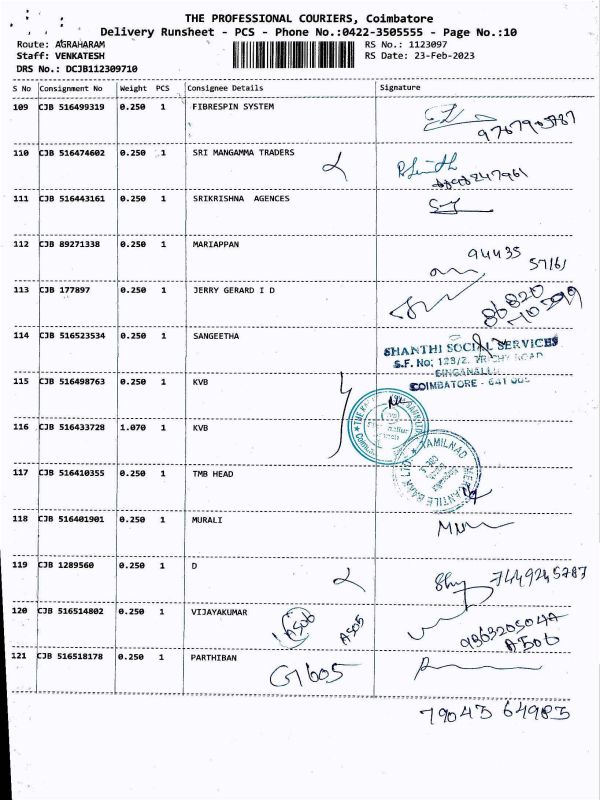 THE PROFESSIONAL COURIERS, Coimbatore
Delivery Runsheet - PCS - Phone No.:0422-3505555 - Page No.:10
Route: AGRAHARAM RS No.: 1123097
Staff: VENKATESH RS Date: 23-Feb-2023
DRS No.: DCJB112309710
S No Consignment No Weight PCS Consignee Details Signature
109 CJB 516499319 0.250 1 FIBRESPIN SYSTEM
110 CJB 516474602 0.250 1 SRI MANGAMMA TRADERS
111 CJB 516443161 0.250 1 SRIKRISHNA AGENCES
112 CJB 89271338 0.250 1 MARIAPPAN
94435
57161
113 CJB 177897 0.250 1 JERRY GERARD I D
86820
114 CJB 516523534 0.250 1 SANGEETHA
SHANTHI SOCIAL SERVICES
S.F. No: 129/2, TRICHY ROAD
SINGANALLUR
COIMBATORE - 641 005
115 CJB 516498763 0.250 1 KVB
116 CJB 516433728 1.070 1 KVB
TAMILNAD MERCANTILE BANK LTD
117 CJB 516410355 0.250 1 TMB HEAD
118 CJB 516401901 0.250 1 MURALI
119 CJB 1289560 0.250 1 D
7449245787
120 CJB 516514802 0.250 1 VIJAYAKUMAR A506 A505
A506
121 CJB 516518178 0.250 1 PARTHIBAN G1605
79043 64983